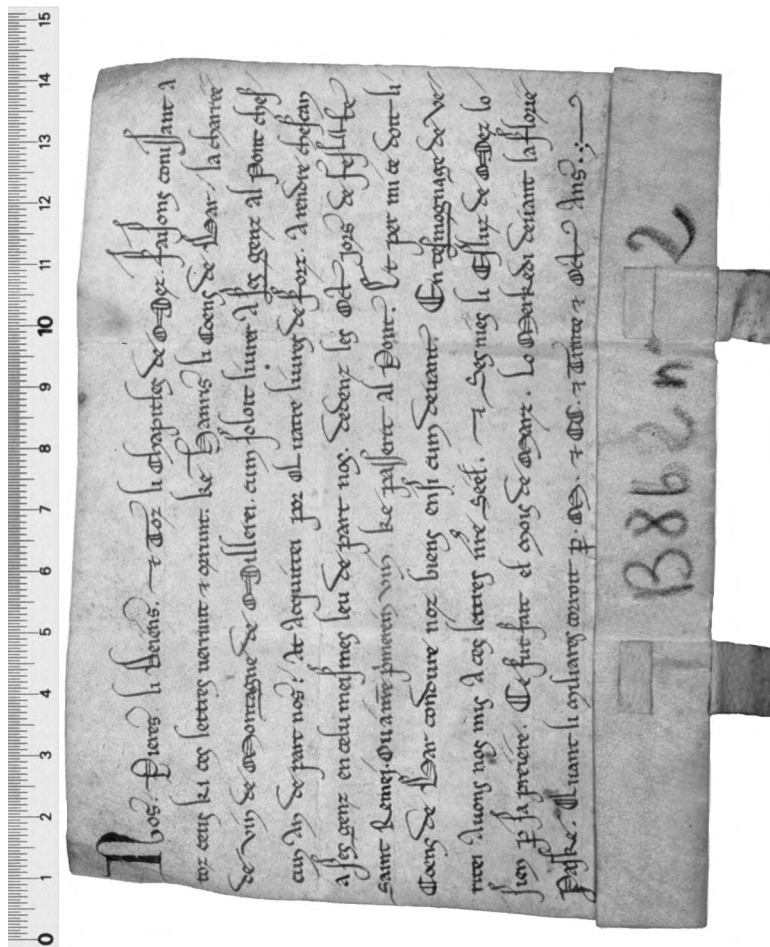 Nos Pieres. li Deiens. ⁊ Toz li Chapitles de Mez. faisons conissant a
toz ceus ki ces lettres uerrunt ⁊ orrunt. ke Hanris li Coens de Bar. la charree
de uin de Montagne de Milleri. cum soloit liurer a ses genz al Pont chef
cun an de part nos: At Acquitei por Quatre liures de fort. A rendre chescun
a ses genz en celu meismes leu de part nos. dedenz les Oct Jors de feste
saint Remei. Ou a nre pmereins uin ke passent al Pont. Et per mi ce doit li
Coens de Bar condure noz biens ensi cum deuant. En tesmognage de ve
ritei Auons nos mis a ces lettres nre Seel. ⁊ Ses nies li Esluz de Mez lo
sien p sa preiere. Ce fut fait el mois de Marz. lo Merkedi deuant la florie
Paske. Quant li miliares corroit p. M. ⁊ CC. ⁊ Trente ⁊ Oct Ans.
B 862 n° 2
0 1 2 3 4 5 6 7 8 9 10 11 12 13 14 15